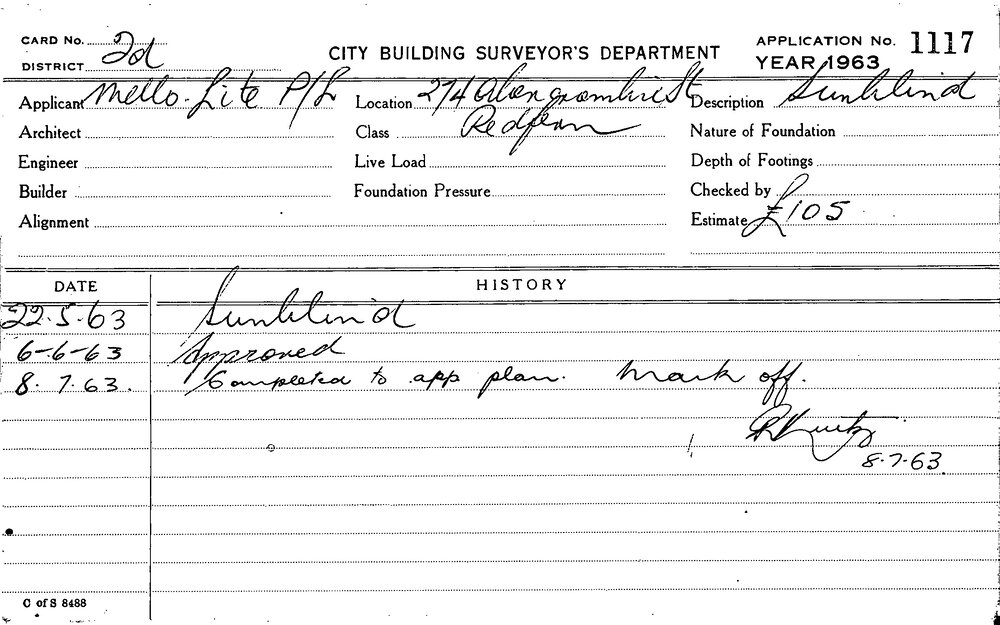 CARD No.
DISTRICT 2d
CITY BUILDING SURVEYOR'S DEPARTMENT
APPLICATION No. 1117
YEAR 1963
Applicant Mello-Lite P/L
Location 274 St
Redfern
Description Sunblind
Architect
Class
Nature of Foundation
Engineer
Live Load
Depth of Footings
Builder
Foundation Pressure
Checked by
Alignment
Estimate £105
DATE
HISTORY
22.5.63 Sunblind
6-6-63 Approved
8.7.63. Completed to app plan. Mark off.
8.7.63
C of S 8488